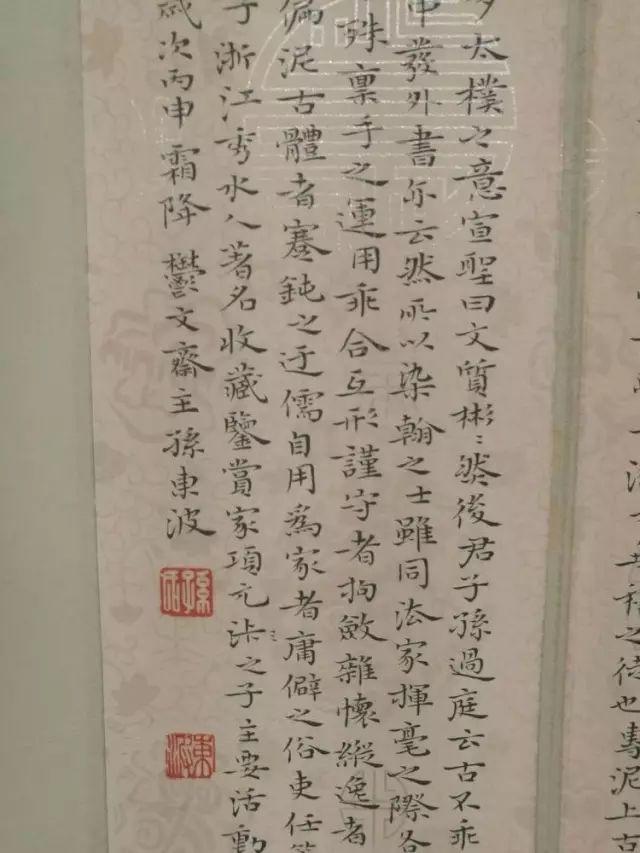 之徒也專泥上古
太樸之意宣聖曰文質彬〻然後君子孫過庭云古不乖
中發外書亦云然所以染翰之士雖同法家揮毫之際各
殊稟手之運用乖合互形謹守者拘斂雜懷縱逸者
偏泥古體者蹇鈍之迂儒自用爲家者庸僻之俗吏任
子浙江秀水人著名收藏鑒賞家項元汴之子主要活動
歲次丙申霜降鬱文齋主孫東波
孫印
東波